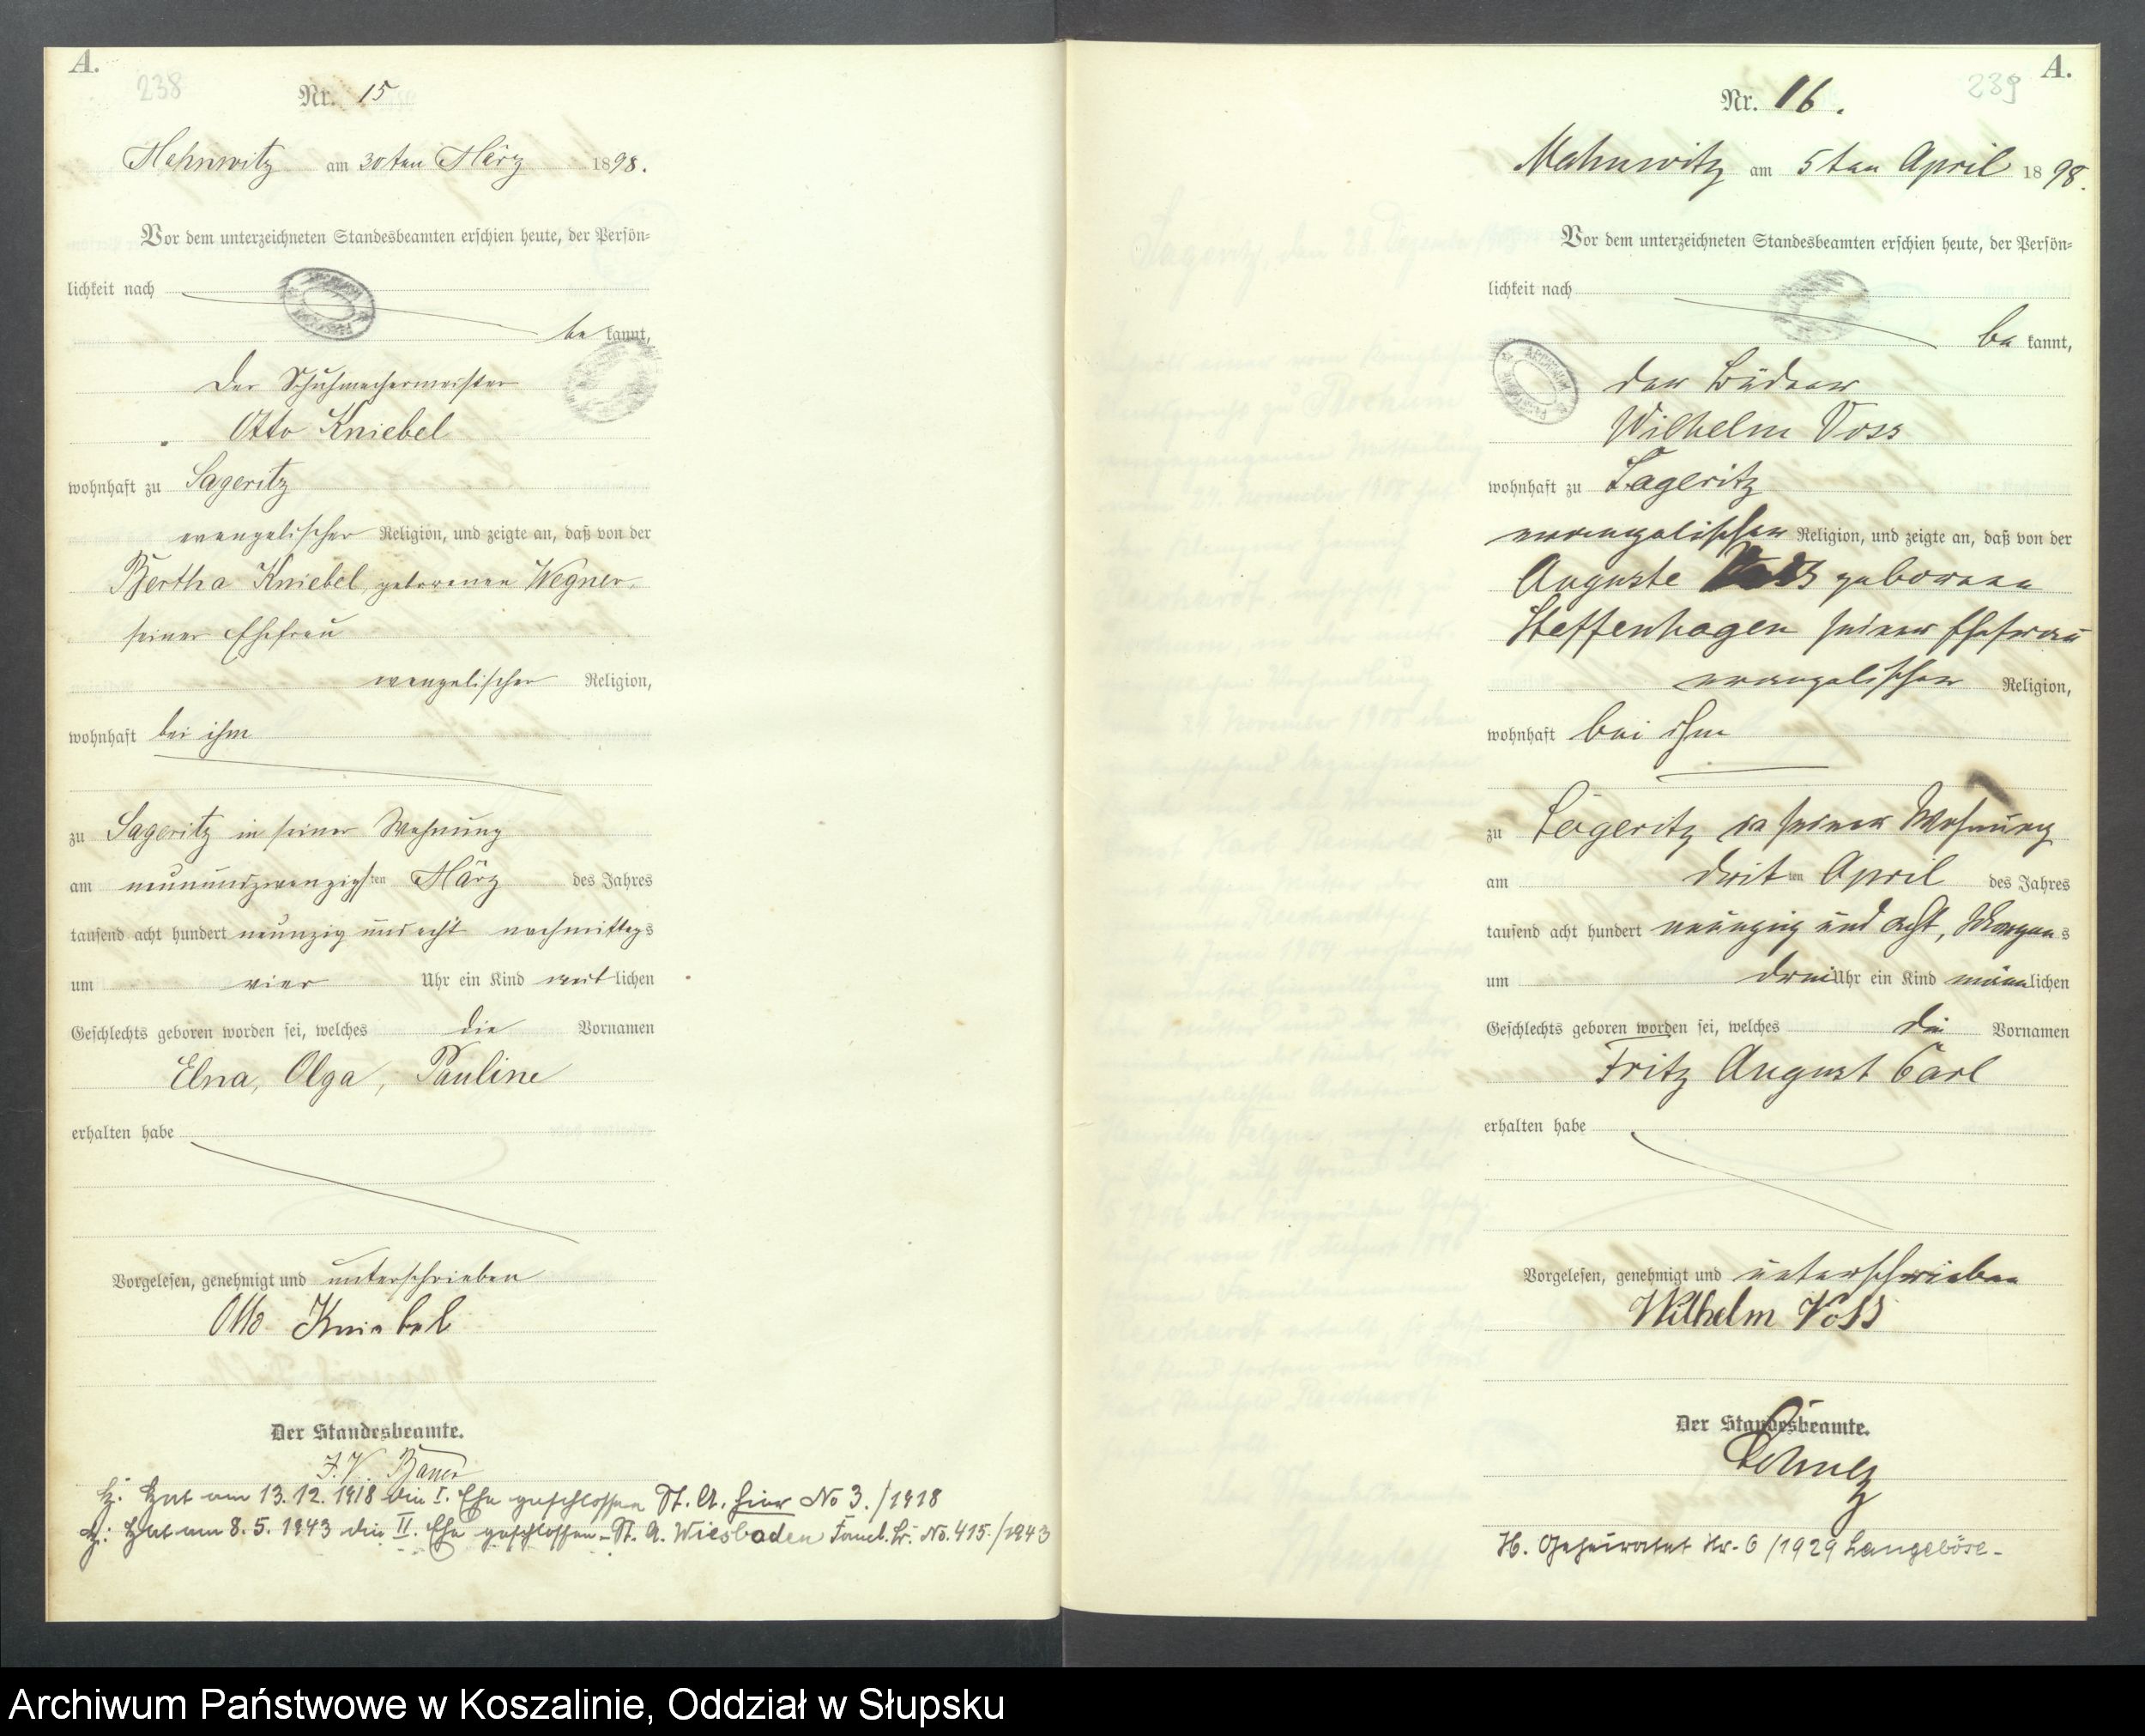 A.
238
Nr. 15
Mahnwitz am 30ten März 1898.
Vor dem unterzeichneten Standesbeamten erschien heute, der Persön=
lichkeit nach
be kannt,
der Schuhmachermeister
Otto Kniebel
wohnhaft zu Sageritz
evangelischer Religion, und zeigte an, daß von der
Bertha Kniebel, geborenen Wegner,
seiner Ehefrau
evangelischer Religion,
wohnhaft bei ihm
zu Sageritz in seiner Wohnung
am neunundzwanzigsten März des Jahres
tausend acht hundert neunzig und acht nachmittags
um vier Uhr ein Kind weiblichen
Geschlechts geboren worden sei, welches die Vornamen
Elna, Olga, Pauline
erhalten habe
Vorgelesen, genehmigt und unterschrieben
Otto Kniebel
Der Standesbeamte.
J. V. Bauer
H. Hat am 13.12.1918 die I. Ehe geschlossen St. A. hier No 3./1918
H: Hat am 8.5.1943 die II. Ehe geschlossen - St. A. Wiesbaden Famil. No. 415./1943
A.
239
Nr. 16.
Mahnwitz am 5ten April 1898.
Vor dem unterzeichneten Standesbeamten erschien heute, der Persön=
lichkeit nach
be kannt,
der Büdner
Wilhelm Voss
wohnhaft zu Sageritz
evangelischer Religion, und zeigte an, daß von der
Auguste Voss geborene
Steffenhagen seiner Ehefrau
evangelischer Religion,
wohnhaft bei ihm
zu Sageritz in seiner Wohnung
am dritten April des Jahres
tausend acht hundert neunzig und acht, Morgens
um drei Uhr ein Kind männlichen
Geschlechts geboren worden sei, welches die Vornamen
Fritz August Carl
erhalten habe
Vorgelesen, genehmigt und unterschrieben
Wilhelm Voss
Der Standesbeamte.
H. Geheiratet Nr. 6/1929 Langeböse -
Archiwum Państwowe w Koszalinie, Oddział w Słupsku